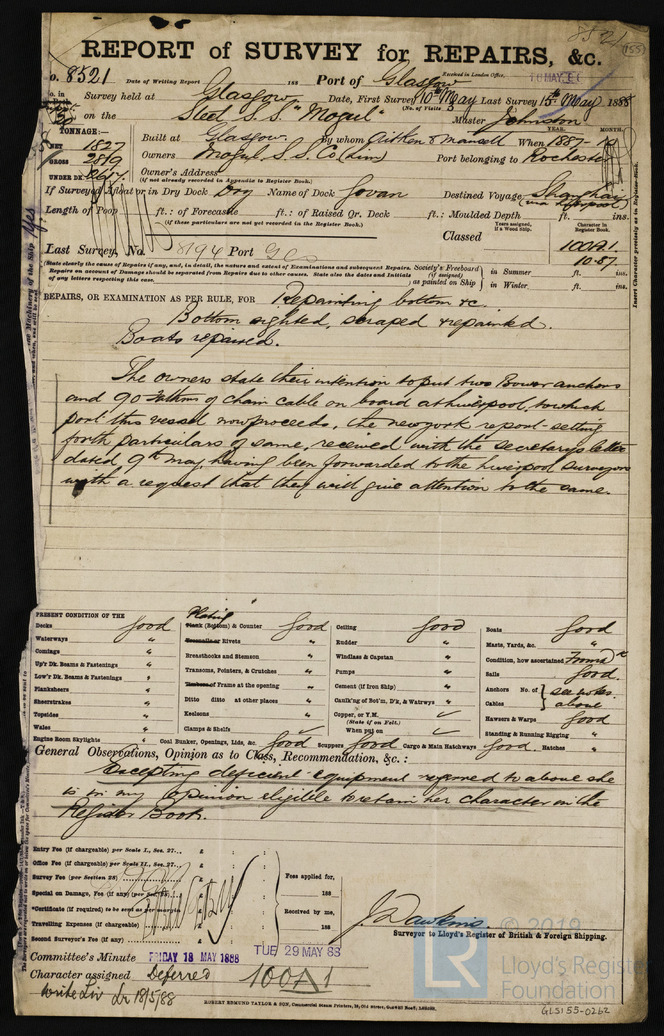 REPORT of SURVEY for REPAIRS, &c.
No. 8521 Date of Writing Report 188 Port of Glasgow Received in London Office,
Survey held at Glasgow Date, First Survey 10th May Last Survey 15th May 1888
(No. of Visits 3)
on the Steel S.S. "Mogul" Master Johnson
TONNAGE:
NET 1827
GROSS
UNDER DK.
Built at Glasgow. By whom Aitken & Mansell When 1887-10
YEAR. MONTH.
Owners Mogul S.S. Co (Lim) Port belonging to Rochester
Owners' Address
(If not already recorded in Appendix to Register Book.)
If Surveyed Afloat or in Dry Dock Dry Name of Dock Govan Destined Voyage Shanghai
(via Liverpool)
Length of Poop ft.: of Forecastle ft.: of Raised Qr. Deck ft.: Moulded Depth ft. ins.
(if these particulars are not yet recorded in the Register Book.)
Years assigned, if a Wood Ship.
Character in Register Book.
Classed 100A1
10.87
Last Survey, No. 8194 Port Gls
(State clearly the cause of Repairs if any, and, in detail, the nature and extent of Examinations and subsequent Repairs.
Repairs on account of Damage should be separated from Repairs due to other causes. State also the dates and Initials
of any letters respecting this case.
Society's Freeboard (if assigned) as painted on Ship
in Summer ft. ins.
in Winter. ft. ins.
Insert Character precisely as in Register Book.
REPAIRS, OR EXAMINATION AS PER RULE, FOR Repainting bottom &c.
Bottom sighted, scraped & repainted.
Boats repaired.
The owners state their intention to put two Bower anchors
and 90 fathoms of chain cable on board at Liverpool, to which
port this vessel now proceeds, the New York report - setting
forth particulars of same, received with the secretary's letter
dated 9th May, having been forwarded to the Liverpool surveyors
with a request that they will give attention to the same.
PRESENT CONDITION OF THE
Decks good
Waterways "
Comings "
Up'r Dk. Beams & Fastenings "
Low'r Dk. Beams & Fastenings "
Planksheers "
Sheerstrakes "
Topsides "
Wales "
Engine Room Skylights "
Plating
Plank (Bottom) & Counter good
Treenails or Rivets "
Breasthooks and Stemson "
Transoms, Pointers, & Crutches "
Timbers of Frame at the opening "
Ditto ditto at other places "
Keelsons "
Clamps & Shelfs
Coal Bunker, Openings, Lids, &c. good
Ceiling good
Rudder "
Windlass & Capstan "
Pumps "
Cement (if Iron Ship) "
Caulk'ng of Bot'm, D'k, & Watrwys "
Copper, or Y.M.
(State if on Felt.)
When put on
Scuppers good Cargo & Main Hatchways good. Hatches "
Boats good
Masts, Yards, &c. "
Condition, how ascertained From dk
Sails good.
Anchors No. of see notes
Cables above
Hawsers & Warps good
Standing & Running Rigging "
General Observations, Opinion as to Class, Recommendation, &c.:
Excepting deficient equipment referred to above she
is in my opinion eligible to retain her character in the
Register Book.
Entry Fee (if chargeable) per Scale I., Sec. 27... £ : :
Office Fee (if chargeable) per Scale II., Sec. 27... £ : :
Survey Fee (per Section 28) £ : :
Special on Damage, Fee (if any) (per Sec. 28) £ : :
*Certificate (if required) to be sent as per margin £ : :
Travelling Expenses (if chargeable) £ : :
Second Surveyor's Fee (if any) £ : :
Fees applied for,
188
Received by me,
188
J. Dawkins
Surveyor to Lloyd's Register of British & Foreign Shipping.
Committee's Minute FRIDAY 18 MAY 1888 TUE 29 MAY 88
Character assigned Deferred 100A1
Write Liv 18/5/88
ROBERT EDMUND TAYLOR & SON, Commercial Steam Printers, 19, Old Street, Goswell Road, LONDON.
© 2019
LR
Lloyd's Register
Foundation
GLS155-0262